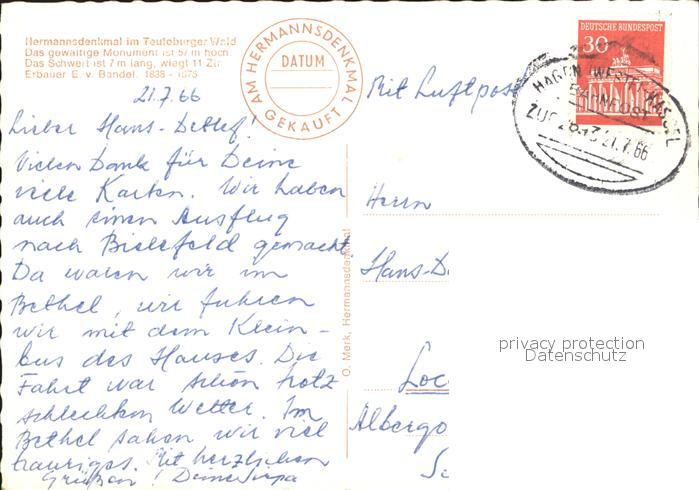 Hermannsdenkmal im Teutoburger Wald
Das gewaltige Monument ist 57 m hoch
Das Schwert ist 7 m lang, wiegt 11 Ztr
Erbauer E. v. Bandel, 1838 - 1875
AM HERMANNSDENKMAL
DATUM
GEKAUFT
DEUTSCHE BUNDESPOST
30
HAGEN (WESTF) - KASSEL
BAHNPOST
ZUG 2613 21.7.66
21.7.66
Mit Luftpost
Lieber Hans-Detlef!
Vielen Dank für Deine
viele Karten. Wir haben
auch einen Ausflug
nach Bielefeld gemacht.
Da waren wir im
Bethel, wir fuhren
wir mit dem Klein-
bus des Hauses. Die
Fahrt war schön trotz
schlechten Wetter. Im
Bethel sahen wir viel
trauriges. Mit herzlichen
Grüßen! Deine
O. Merk, Hermannsdenkmal
Herrn
Hans-D
Loc
Albergo
privacy protection
Datenschutz